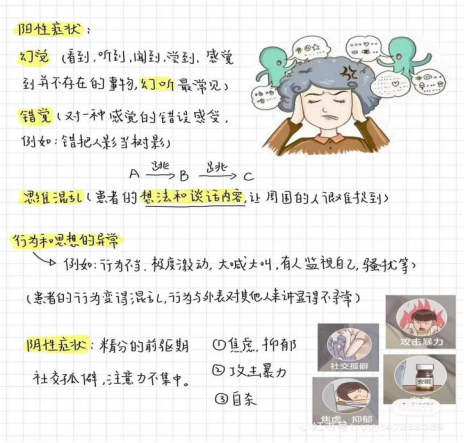 阳性症状:
幻觉 (看到,听到,闻到,尝到,感觉
到并不存在的事物,幻听最常见)
错觉 (对一种感觉的错误感受,
例如:错把人影当树影)
A 跳→ B 跳→ C
思维混乱(患者的想法和谈话内容,让周围的人很难捉到)
行为和思想的异常
↳ 例如:行为不当、极度激动,大喊大叫,有人监视自己,骚扰等)
(患者的行为变得混乱,行为与外表对其他人来讲显得不寻常)
阴性症状:精分的前驱期
社交孤僻,注意力不集中。
①焦虑,抑郁
②攻击暴力
③自杀
社交孤僻
攻击暴力
焦虑、抑郁
安眠